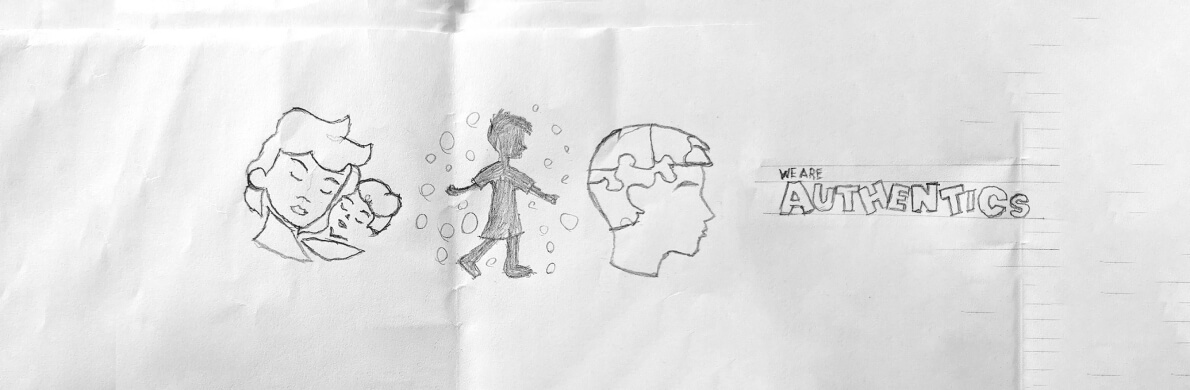 WE ARE
AUTHENTICS